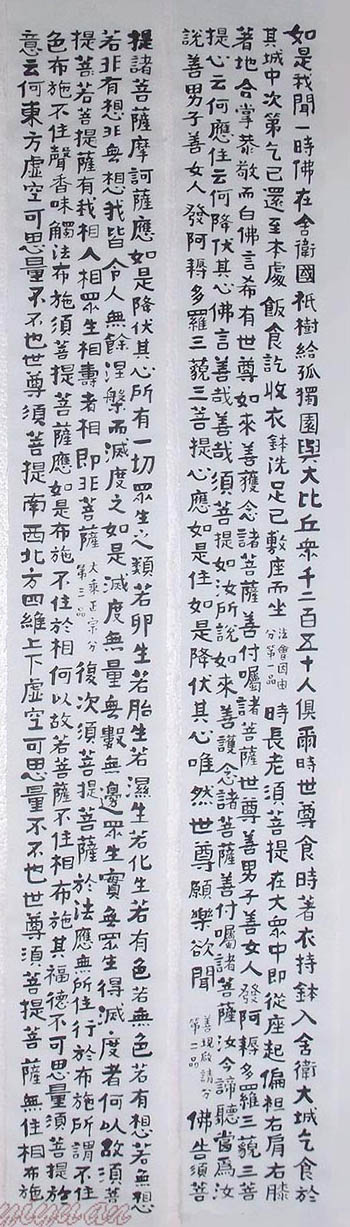 如是我聞一時佛在舍衛國祇樹給孤獨園與大比丘眾千二百五十人俱爾時世尊食時著衣持鉢入舍衛大城乞食於
其城中次第乞已還至本處飯食訖收衣鉢洗足已敷座而坐 法會因由分第一品 時長老須菩提在大眾中即從座起偏袒右肩右膝
著地合掌恭敬而白佛言希有世尊如來善獲念諸菩薩善付囑諸菩薩世尊善男子善女人發阿耨多羅三藐三菩
提心云何應住云何降伏其心佛言善哉善哉須菩提如汝所說如來善護念諸菩薩善付囑諸菩薩汝今諦聽當為汝
說善男子善女人發阿耨多羅三藐三菩提心應如是住如是降伏其心唯然世尊願樂欲聞 善現啟請分第二品 佛告須菩
提諸菩薩摩訶薩應如是降伏其心所有一切眾生之類若卵生若胎生若濕生若化生若有色若無色若有想若無想
若非有想非無想我皆令入無餘涅槃而滅度之如是滅度無量無數無邊眾生實無眾生得滅度者何以故須菩
提菩若菩提薩有我相人相眾生相壽者相即非菩薩 大乘正宗分第三品 復次須菩提菩薩於法應無所住行於布施所謂不住
色布施不住聲香味觸法布施須菩提菩薩應如是布施不住於相何以故若菩薩不住相布施其福德不可思量須菩提於
意云何東方虛空可思量不不也世尊須菩提南西北方四維上下虛空可思量不不也世尊須菩提菩薩無住相布施